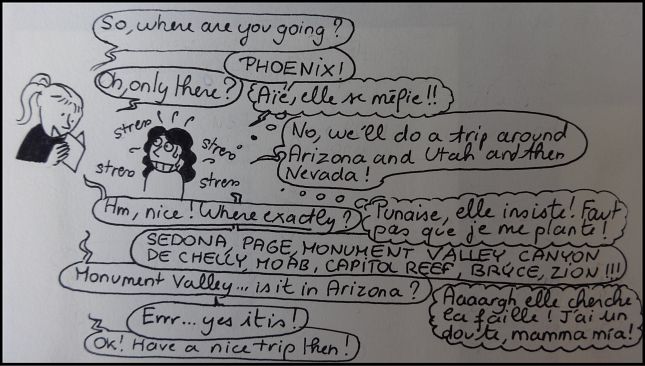 So, where are you going?
PHOENIX!
Oh, only there?
Aïe, elle se méfie!!
stress
stress
stress
stress
No, we'll do a trip around
Arizona and Utah and then
Nevada!
Hm, nice! Where exactly?
Punaise, elle insiste! Faut
pas que je me plante!
SEDONA, PAGE, MONUMENT VALLEY CANYON
DE CHELLY, MOAB, CAPITOL REEF, BRYCE, ZION!!!
Monument Valley... is it in Arizona?
Aaaargh, elle cherche
la faille! J'ai un
doute, mamma mia!
Errr... yes it is!
Ok! Have a nice trip then!